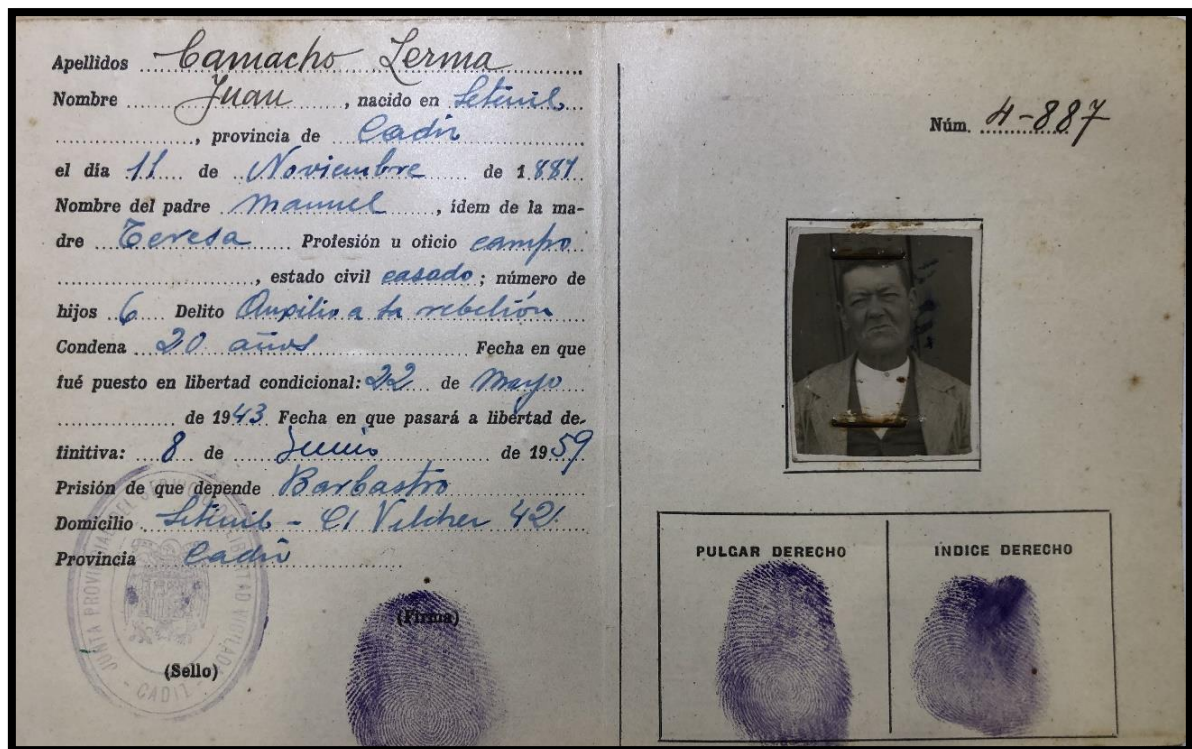 Apellidos Camacho Lerma
Nombre Juan, nacido en Setenil
, provincia de Cadiz
el día 11 de Noviembre de 1881
Nombre del padre Manuel, idem de la ma-
dre Teresa Profesión u oficio campo
, estado civil casado; número de
hijos 6 Delito Auxilio a la rebelión
Condena 20 años Fecha en que
fué puesto en libertad condicional: 22 de Mayo
de 1943 Fecha en que pasará a libertad de-
finitiva: 8 de Junio de 1959
Prisión de que depende Barbastro
Domicilio Setenil - C/ Vilches 42
Provincia Cadiz
(Firma)
(Sello)
JUNTA PROVINCIAL DEL SERVICIO DE LIBERTAD VIGILADA
- CADIZ -
Núm. 4-887
PULGAR DERECHO
INDICE DERECHO